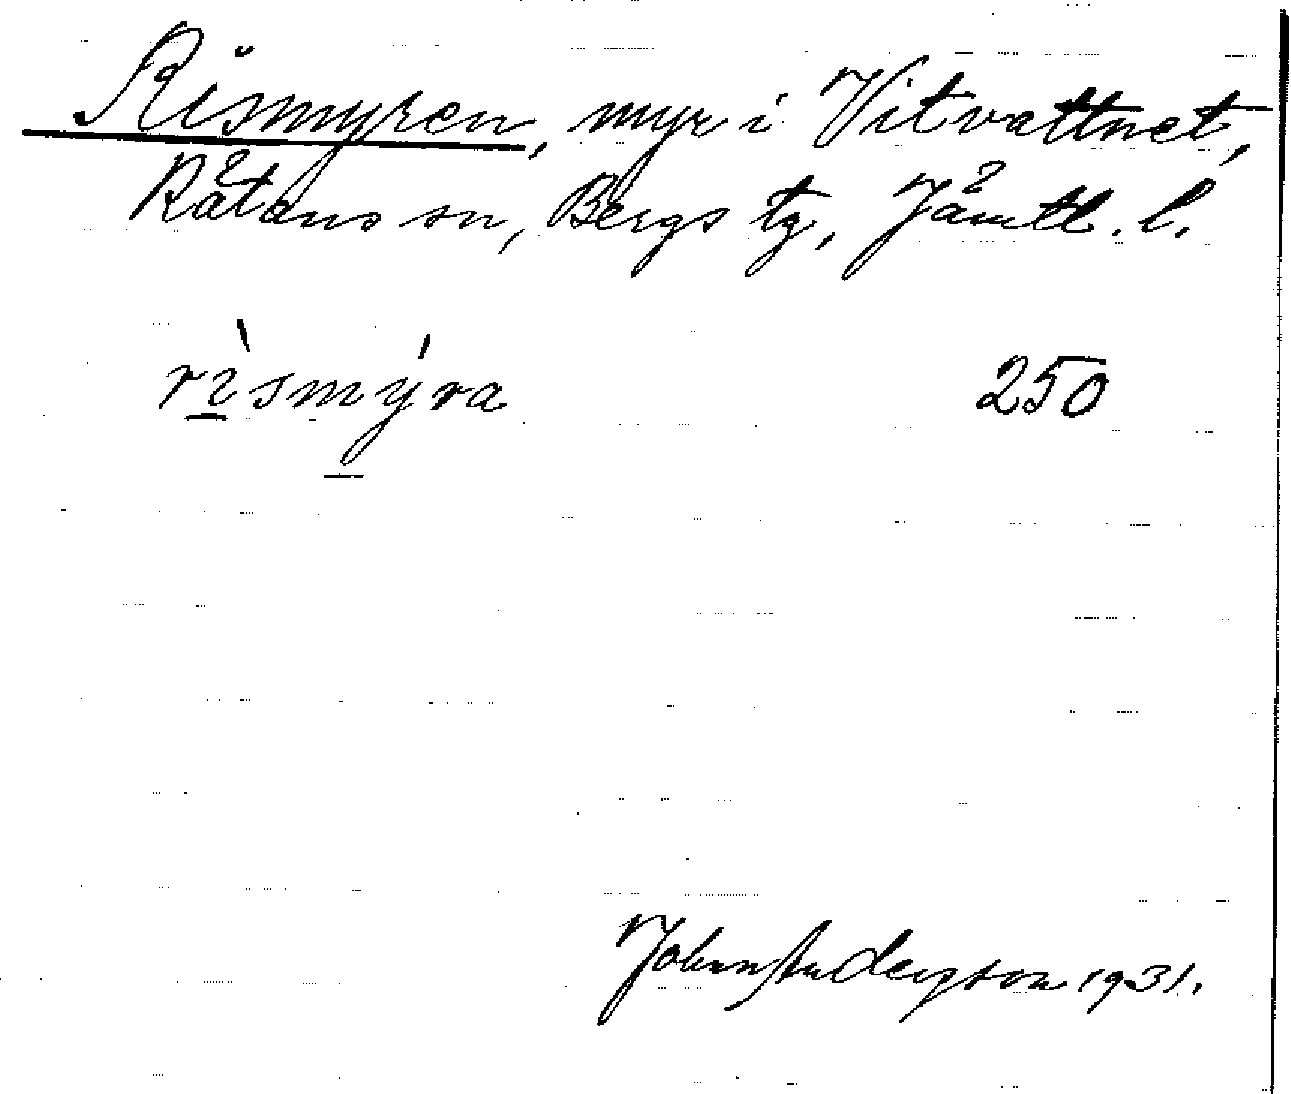 Rismyren, myr i Vitvattnet,
Rätans sn, Bergs tg, Jämtl. l.
rìsmýra 250
John Andersson 1931.